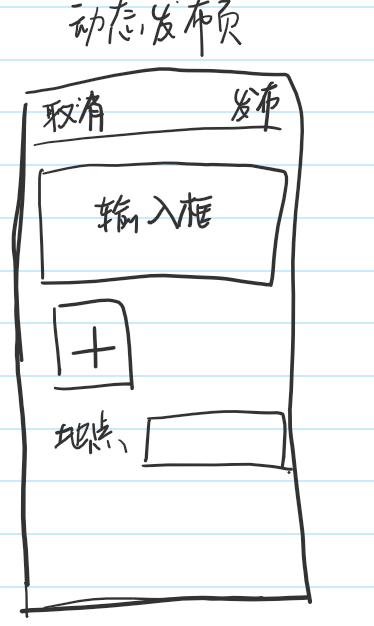 动态发布页
取消 发布
输入框
+
地点